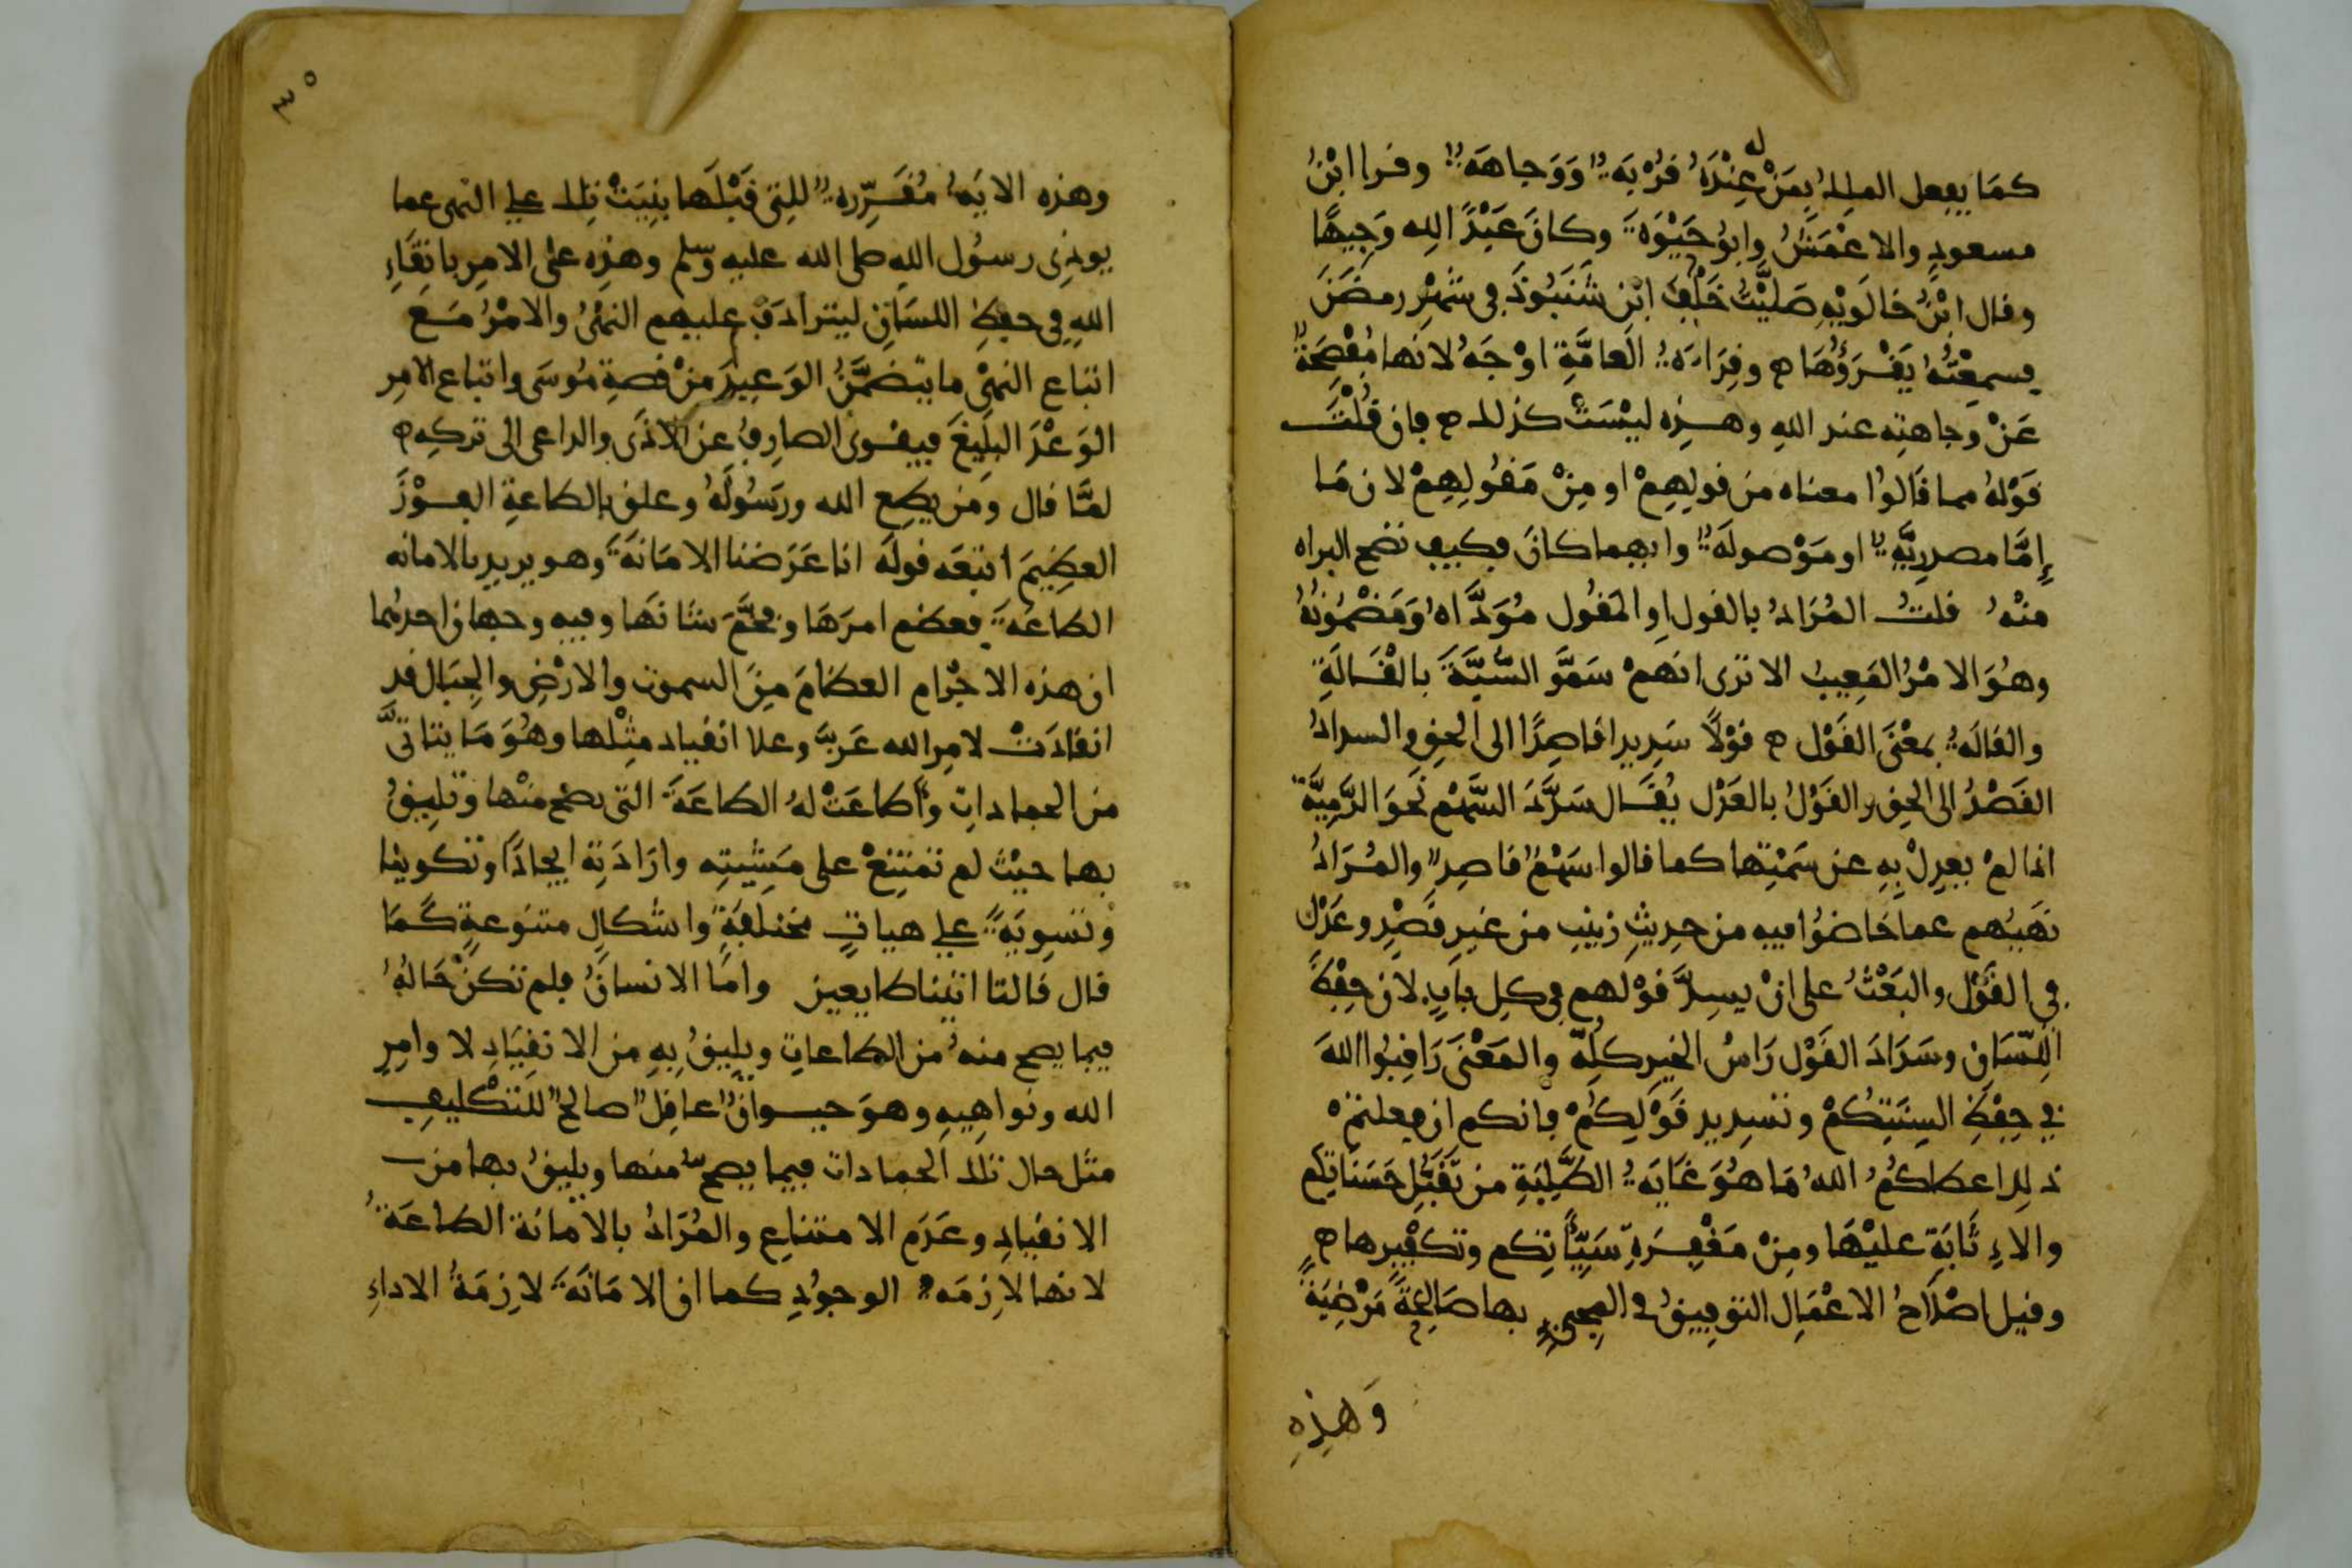 كمَا يفعل الملك بمَنْ له عِنْدَهُ قُرْبَةٌ وَوَجاهَةٌ وقرا ابْنُ
مسعودٍ والاعْمَشُ وابوُ حَيْوَةَ وكانَ عَبْدًا للِه وَجِيهًا
وقال ابْنُ خالَوَيْهِ صَليْتُ خَلْفَ ابْنِ شَنَبُوذَ في شَهْرِ رمضَنَ
فسمِعْتُهُ يَقْرَؤُهَا ه وقِرَاءَةُ العَامَّةِ اوْجَهُ لانها مُفْصِحَةٌ
عَنْ وَجاهتِه عند اللهِ وهذِه ليْسَتْ كذلك ه فان قُلْتَ
قَوْلهُ مما قَالوُا معناه من قولِهِمْ او مِنْ مَقُولِهِمْ لان مَا
إمَّا مصدرِيَّةٌ او مَوْصولَةٌ وايهما كانَ فكيف تصح البراه
منْهُ قلتُ المُرَادُ بالقول او المَقُول مُوَدَّاهُ وَمَضْمُونُهُ
وهُوَ الامْرُ المَعِيبُ الا ترى انهمْ سَمَّو السُّبَّةَ بالْقَالَةِ
والقالَةُ بمعْنَى القَوْل ه قوْلًا سَدِيدا قاصِدًا الى الحقِ والسدادُ
القَصْدُ الى الحقِ والقَوْلُ بالعَدْل يُقَال سَدَّدَ السَّهْم نَحوَ الرَّمِيَّةِ
اذا لمْ يعدِلْ بِهِ عن سَمْتِها كما قالوا سَهْمٌ قاصِدٌ والمُرَادُ
نَهيُهم عما خَاضُوا فيه من حدِيثِ زينبِ من غيرِ قصْدٍ وعَدْل
في القَوْل والبَعْثُ على انْ يسِدَّ قوْلهم في كلِ بابٍ لان حِفْظَ
اللِّسَان وسَدَادَ القَوْل رَاسُ الخير كلِهِ والمَعْنَى رَاقِبُوا اللهَ
في حِفْظِ السِنَتِكُمْ وتسدِيد قَوْلِكُمْ فانكم ان فعلتمْ
ذلك اعطاكُمُ اللهُ مَا هُوَ غَايَةُ الطَّلِبَةِ من تَقَبُّلِ حَسَناتِكم
والاِثَابَةِ عليْهَا ومِنْ مَغْفِرَةِ سَيِّئاتِكم وتكفِيرِها ه
وقيل اصْلَاحُ الاعْمَالِ التوفيقُ في المجيءِ بها صَالِحَةً مَرْضِيَةً
وَهذِهِ
٣٥
وهذه الايَةُ مُقَرِّرةٌ للتِى قَبْلَها بنِيَتْ تِلك علي النهى عما
يوذِى رسُول اللهِ صلى الله عليه وسلم وهذِه على الامرِ باتقَاءِ
اللهِ في حفظِ اللسَانِ ليترادَفَ عليهم النهْىُ والامْرُ مَعَ
اتباع النهْى ما يتضمَّنُ الوَعيِدَ منْ قصةِ مُوسَى واتباعِ الامرِ
الوَعْدَ البلِيغَ فيقوى الصارفُ عن الاذَى والداعى الى تركِهِ ه
لمَّا قال وَمَن يطِعِ الله ورَسُولَهُ وعلق بالطاعةِ الفَوْزَ
العظِيمَ اتبعَه قولَهَ انا عَرَضنا الامَانَةَ وهو يريد بالامانه
الطاعَةَ فعظم امرَهَا وفَخَّمَ شانَها وفيه وجهان احدهُما
ان هذه الاجْرام العظامَ مِنَ السموت والارْضِ والجِبَال قد
انقادَتْ لامرِ الله عَزَّ وعلا انقياد مثِلْها وهُوَ مَا يتاتَّى
من الجماداتِ واطاعَتْ لهُ الطاعَةَ التى تصح منْها وتَلِيقُ
بها حيْث لم تمتنِعْ على مَشِيتِه وارَادَتِهِ ايجادًا وتكوينا
وتسوِيَةً علي هياتٍ مختلفةٍ واشكالٍ متنوعةٍ كَمَا
قال قَالتا اتينا طايعين وامَا الانسانُ فلم تكنْ حَالهُ
فيما يصح منهُ من الطاعاتِ ويلِيقُ بِهِ من الانقيَادِ لاوامِرِ
الله ونواهِيهِ وهوَ حيوانٌ عاقِلٌ صالحٌ للتكْليفِ
مثل حال تلك الجمادات فيما يصح منها ويليقُ بها من
الانقيادِ وعَدَمِ الامتناعِ والمُرَادُ بالامانة الطاعَةُ
لانها لازِمَةُ الوجوُدِ كما ان الامَانَةَ لازِمَةُ الاداءِ